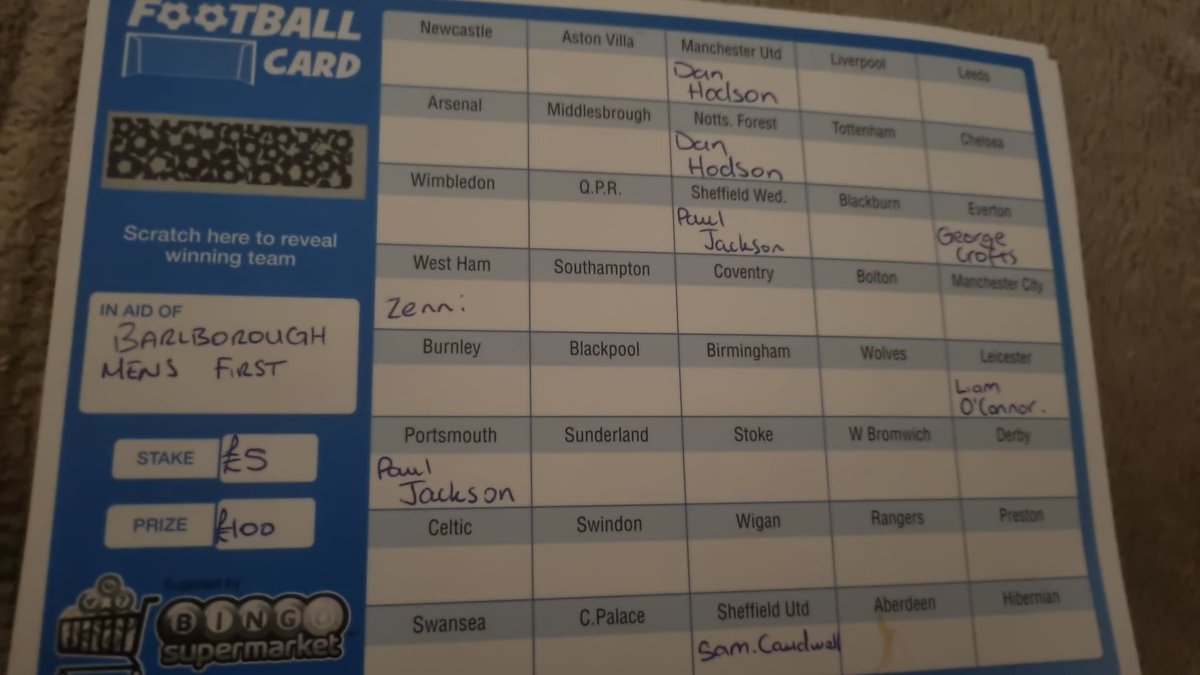 FOOTBALL
CARD
Scratch here to reveal
winning team
IN AID OF
BARLBOROUGH
MENS FIRST
STAKE £5
PRIZE £100
BINGO
supermarket
Newcastle Aston Villa Manchester Utd Liverpool Leeds
Dan
Hodson
Arsenal Middlesbrough Notts. Forest Tottenham Chelsea
Dan
Hodson
Wimbledon Q.P.R. Sheffield Wed. Blackburn Everton
Paul George
Jackson Crofts
West Ham Southampton Coventry Bolton Manchester City
Zenni
Burnley Blackpool Birmingham Wolves Leicester
Liam
O'Connor.
Portsmouth Sunderland Stoke W Bromwich Derby
Paul
Jackson
Celtic Swindon Wigan Rangers Preston
Swansea C.Palace Sheffield Utd Aberdeen Hibernian
Sam.